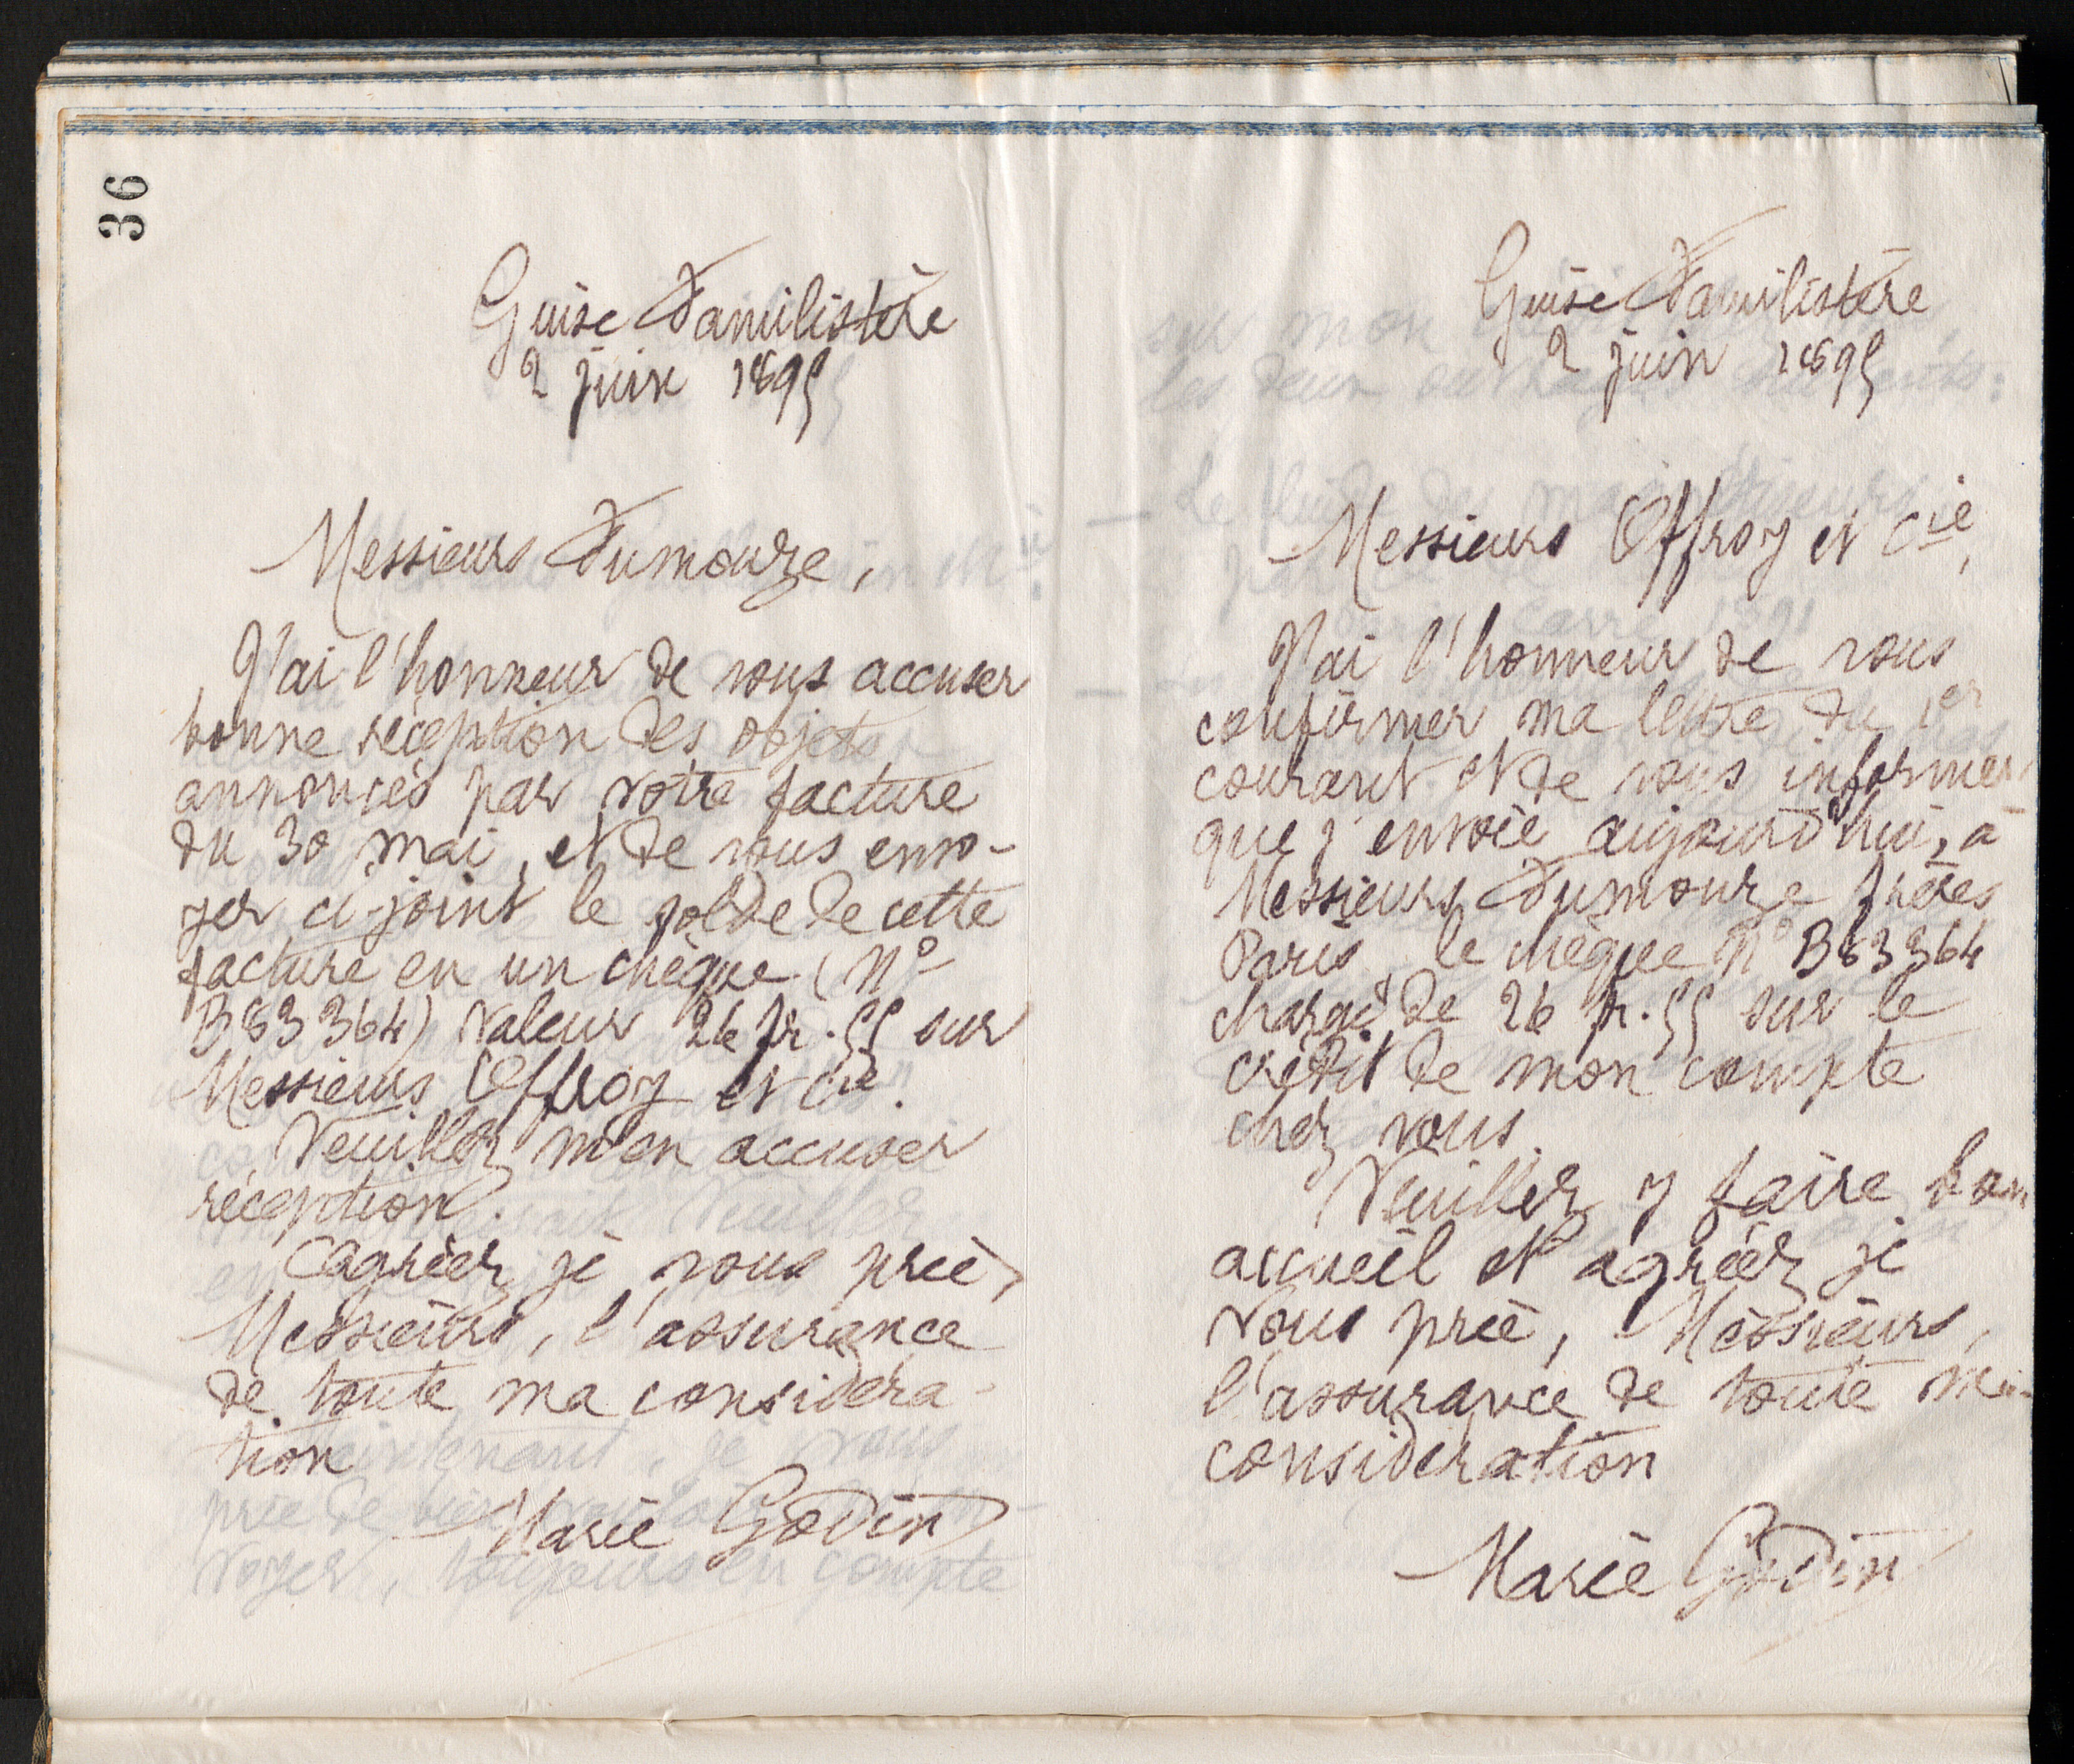 36
Guise Familistère
2 juin 1895
Messieurs Dumouze,
J'ai l'honneur de vous accuser
bonne réception des objets
annoncés par votre facture
du 30 mai, et de vous envo-
yer ci-joint le solde de cette
facture en un chèque (N°
B83364) valeur 26 fr. 55 sur
Messieurs Offroy et Cie.
Veuillez m'en accuser
réception.
Agréez, je vous prie,
Messieurs, l'assurance
de toute ma considéra-
tion
Marie Godin
Guise Familistère
2 juin 1895
Messieurs Offroy et Cie,
J'ai l'honneur de vous
confirmer ma lettre du 1er
courant et de vous informer
que j'envoie aujourd'hui, à
Messieurs Dumouze frères
Paris le chèque N° B83364
chargé de 26 fr. 55 sur le
crédit de mon compte
chez vous.
Veuillez y faire bon
accueil et agréer, je
vous prie, Messieurs,
l'assurance de toute ma
considération
Marie Godin